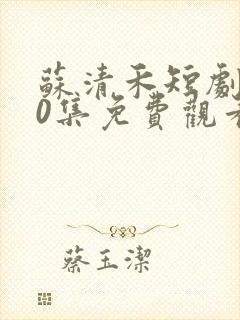 蘇清禾短劇
0集免費觀看
蔡玉潔